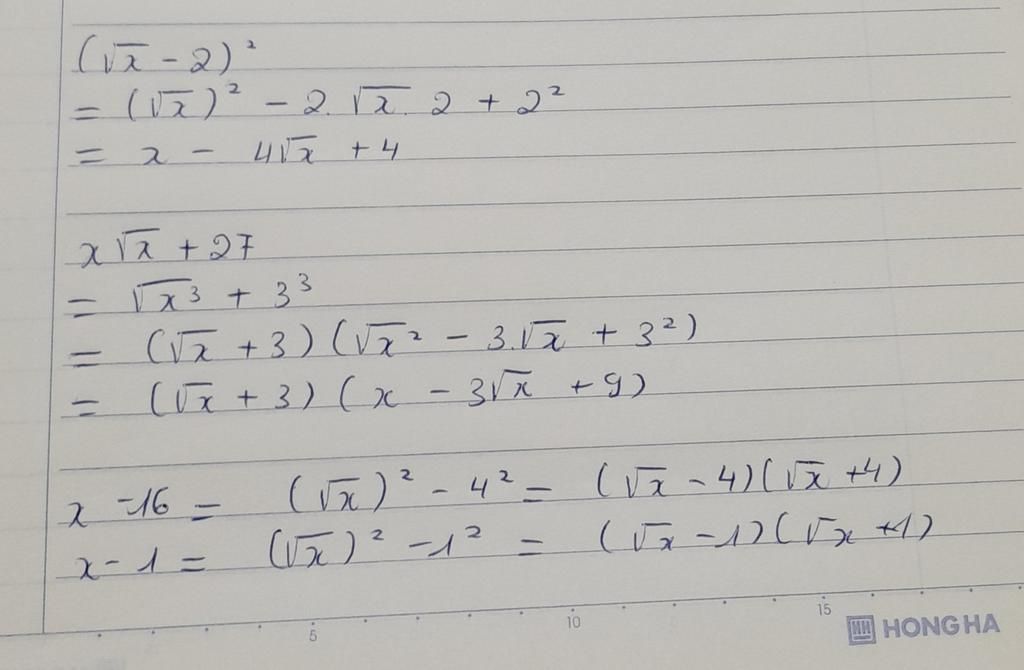 (√x - 2)²
= (√x)² - 2.√x.2 + 2²
= x - 4√x + 4
x√x + 27
= √x³ + 3³
= (√x + 3)(√x² - 3.√x + 3²)
= (√x + 3)(x - 3√x + 9)
x - 16 = (√x)² - 4² = (√x - 4)(√x + 4)
x - 1 = (√x)² - 1² = (√x - 1)(√x + 1)
5 10 15
HONG HA